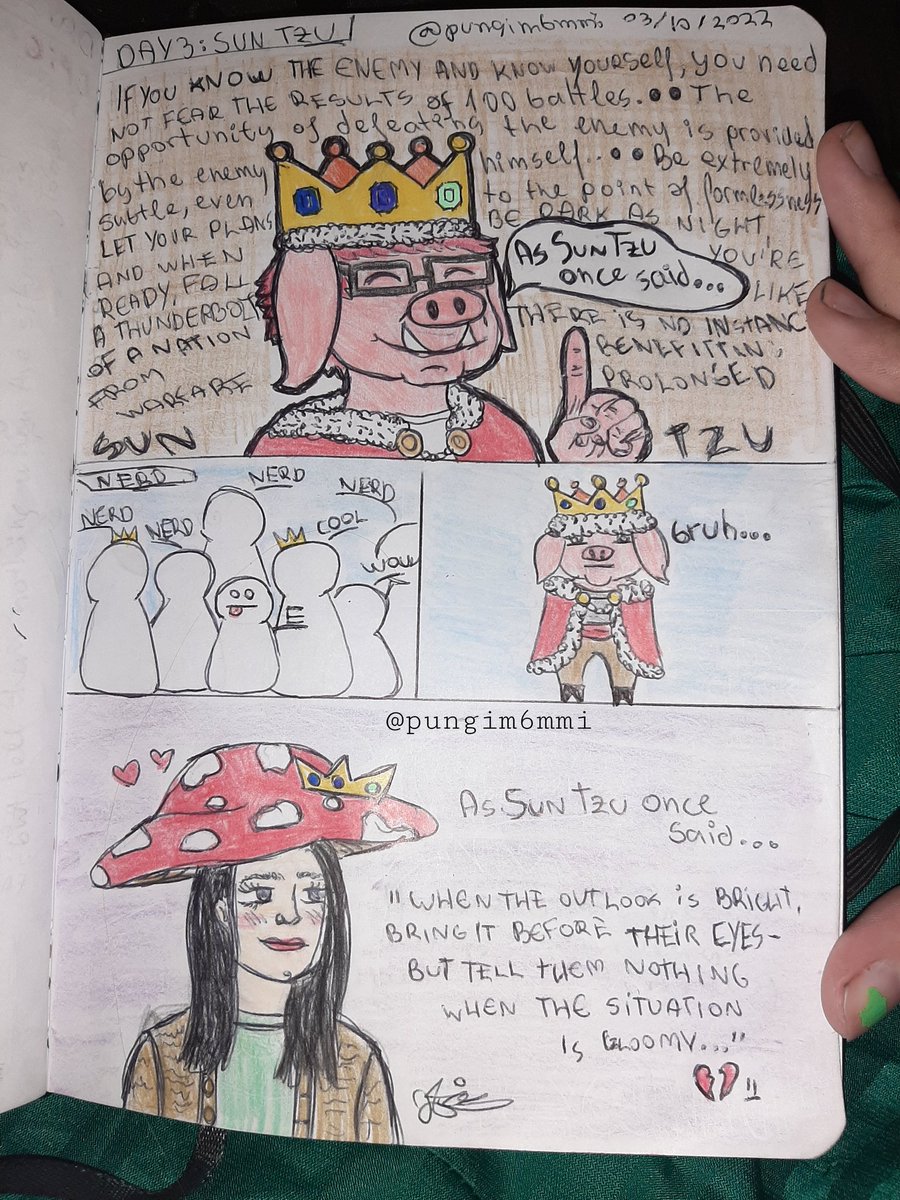 DAY3: SUN TZU
@pungim6mmi 03/10/2022
If YOU KNOW THE ENEMY AND KNOW YOURSELF, YOU NEED
NOT FEAR THE RESULTS OF 100 battles.●●The
opportunity of defeating the enemy is provided
by the enemy himself..●●Be extremely
subtle, even to the point of formlessness
LET YOUR PLANS BE DARK AS NIGHT
AND WHEN YOU'RE
READY, FALL LIKE
A THUNDERBOLT THERE IS NO INSTANC
OF A NATION BENEFITTIN
FROM PROLONGED
WARFARE
SUN TZU
AS SUN TZU
once said...
NERD
NERD
NERD
NERD
NERD
COOL
WOW
E
Bruh...
@pungim6mmi
AS SUN TZU ONCE
Said...
"WHEN THE OUTLOOK IS BRIGHT,
BRING IT BEFORE THEIR EYES-
BUT TELL THEM NOTHING
WHEN THE SITUATION
IS GLOOMY..."